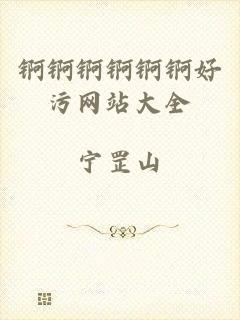 锕锕锕锕锕锕好
污网站大全
宁罡山